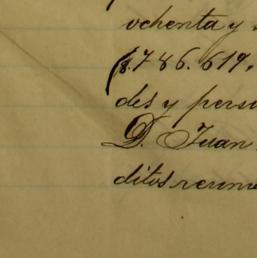 ochenta y
(8.786.619,
des y perso
D. Juan
ditos reunie